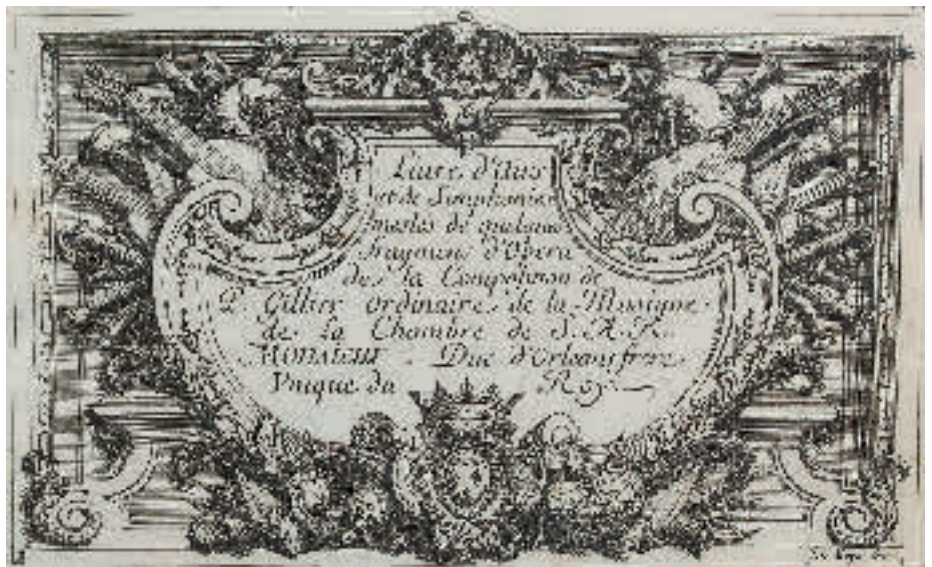 Livre d'Airs
et de Simphonies
meslés de quelques
fragmens d'Opera
de la Composition de
P. Gillier ordinaire de la Musique
de la Chambre de S. A. R.
Monsieur Duc d'Orleans frere
Vnique du Roy